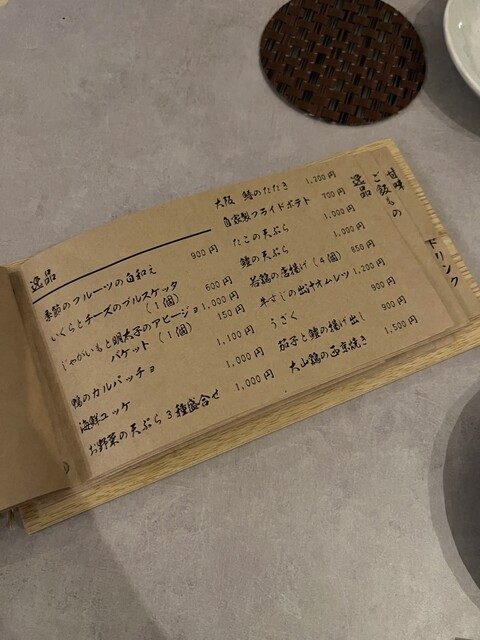 逸品
季節のフルーツの白和え 900円
いくらとチーズのブルスケッタ
(1個) 600円
じゃがいもと明太子のアヒージョ 1,000円
バケット(1個) 100円
鴨のカルパッチョ 1,100円
海鮮ユッケ 1,000円
お野菜の天ぷら3種盛合せ 1,000円
大阪 鯖のたたき 1,200円
自家製フライドポテト 700円
たこの天ぷら 1,000円
鱧の天ぷら 1,000円
若鶏の唐揚げ(4個) 850円
牛すじの出汁オムレツ 1,200円
うざく 900円
茄子と鱧の揚げ出し 900円
大山鶏の西京焼き 1,500円
逸品
ご飯もの
甘味
ドリンク